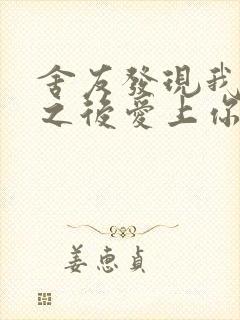 舍友發現我
之後愛上你
姜惠貞